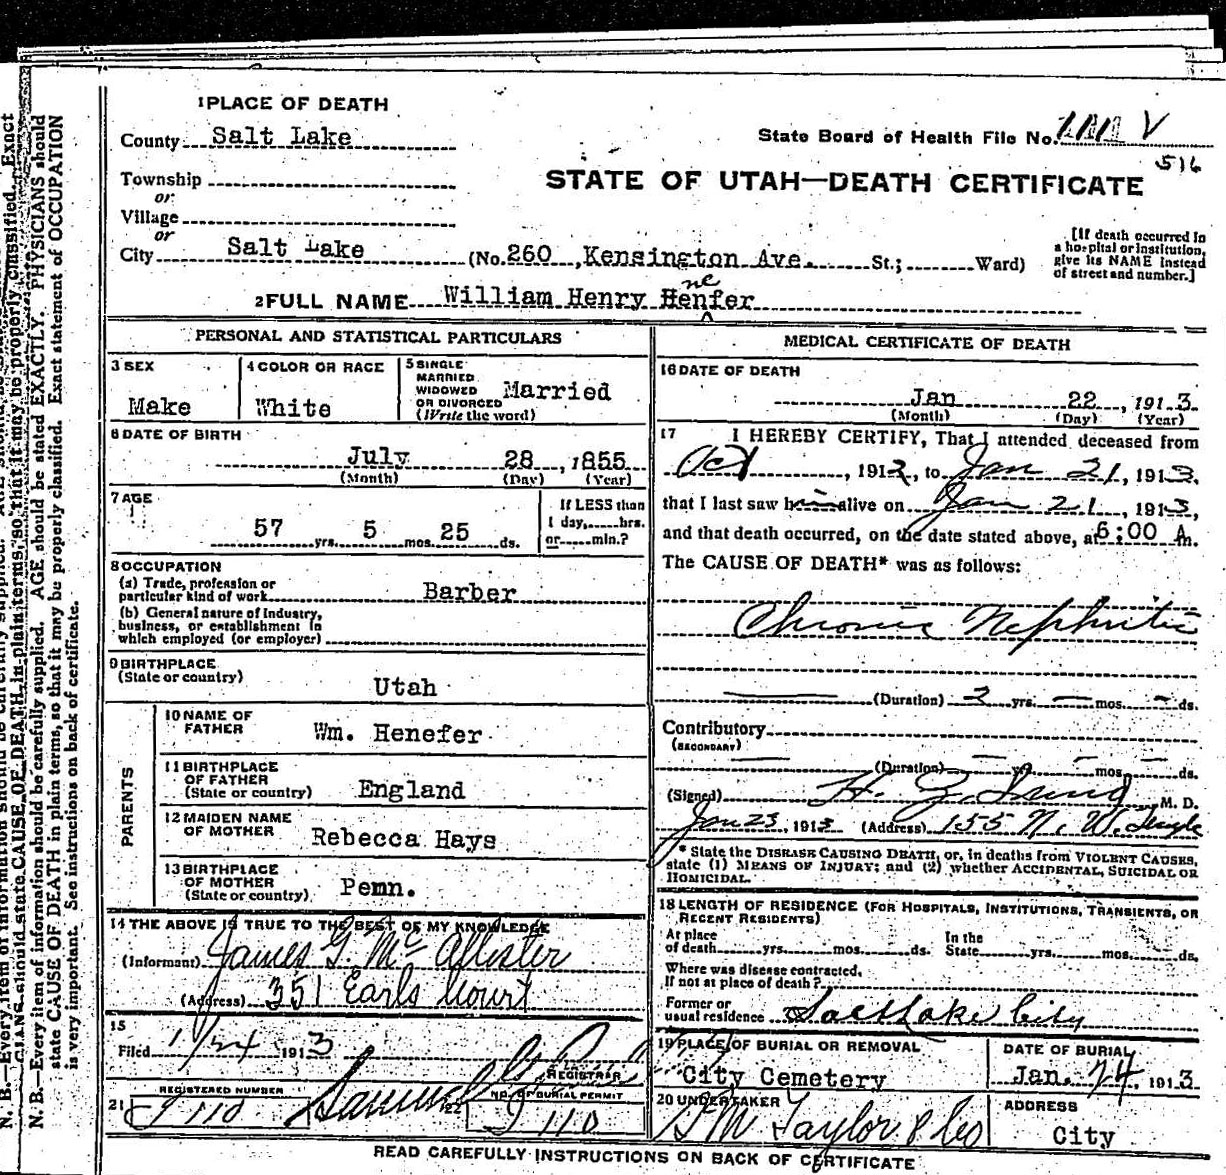 N. B.—Every item of information should be carefully supplied. AGE should be stated EXACTLY. PHYSICIANS should
state CAUSE OF DEATH in plain terms, so that it may be properly classified. Exact statement of OCCUPATION
is very important. See instructions on back of certificate.
1 PLACE OF DEATH
County Salt Lake
State Board of Health File No.
516
Township
or
Village
or
City Salt Lake (No. 260, Kensington Ave. St.; Ward)
STATE OF UTAH—DEATH CERTIFICATE
[If death occurred in
a hospital or institution,
give its NAME instead
of street and number.]
2 FULL NAME William Henry Henfer
ne
^
PERSONAL AND STATISTICAL PARTICULARS
3 SEX
Make
4 COLOR OR RACE
White
5 SINGLE
MARRIED
WIDOWED
OR DIVORCED
(Write the word)
Married
6 DATE OF BIRTH
July 28, 1855
(Month) (Day) (Year)
7 AGE
57 yrs. 5 mos. 25 ds.
If LESS than
1 day,......hrs.
or......min.?
8 OCCUPATION
(a) Trade, profession or
particular kind of work Barber
(b) General nature of Industry,
business, or establishment in
which employed (or employer)
9 BIRTHPLACE
(State or country)
Utah
PARENTS
10 NAME OF
FATHER
Wm. Henefer
11 BIRTHPLACE
OF FATHER
(State or country)
England
12 MAIDEN NAME
OF MOTHER
Rebecca Hays
13 BIRTHPLACE
OF MOTHER
(State or country)
Penn.
14 THE ABOVE IS TRUE TO THE BEST OF MY KNOWLEDGE
(Informant) James G. McAllister
(Address) 351 Earls Court
15
Filed 1/24 1913
REGISTRAR
REGISTERED NUMBER
21
110
Samuel
NO. OF BURIAL PERMIT
22
110
MEDICAL CERTIFICATE OF DEATH
16 DATE OF DEATH
Jan 22, 1913
(Month) (Day) (Year)
17 I HEREBY CERTIFY, That I attended deceased from
Oct, 1912, to Jan 21, 1913,
that I last saw him alive on Jan 21, 1913,
and that death occurred, on the date stated above, at 6:00 A m.
The CAUSE OF DEATH* was as follows:
Chronic Nephritis
(Duration) 2 yrs. — mos. — ds.
Contributory
(SECONDARY)
(Duration) — yrs. — mos. — ds.
(Signed) M. D.
Jan 23, 1913 (Address) 155 N. W. Temple
* State the DISEASE CAUSING DEATH, or, in deaths from VIOLENT CAUSES,
state (1) MEANS OF INJURY; and (2) whether ACCIDENTAL, SUICIDAL OR
HOMICIDAL.
18 LENGTH OF RESIDENCE (FOR HOSPITALS, INSTITUTIONS, TRANSIENTS, OR
RECENT RESIDENTS)
At place
of death......yrs......mos......ds.
In the
State......yrs......mos......ds.
Where was disease contracted,
If not at place of death?
Former or
usual residence Salt Lake City
19 PLACE OF BURIAL OR REMOVAL
City Cemetery
DATE OF BURIAL
Jan. 24, 1913
20 UNDERTAKER
S M Taylor & Co
ADDRESS
City
READ CAREFULLY INSTRUCTIONS ON BACK OF CERTIFICATE